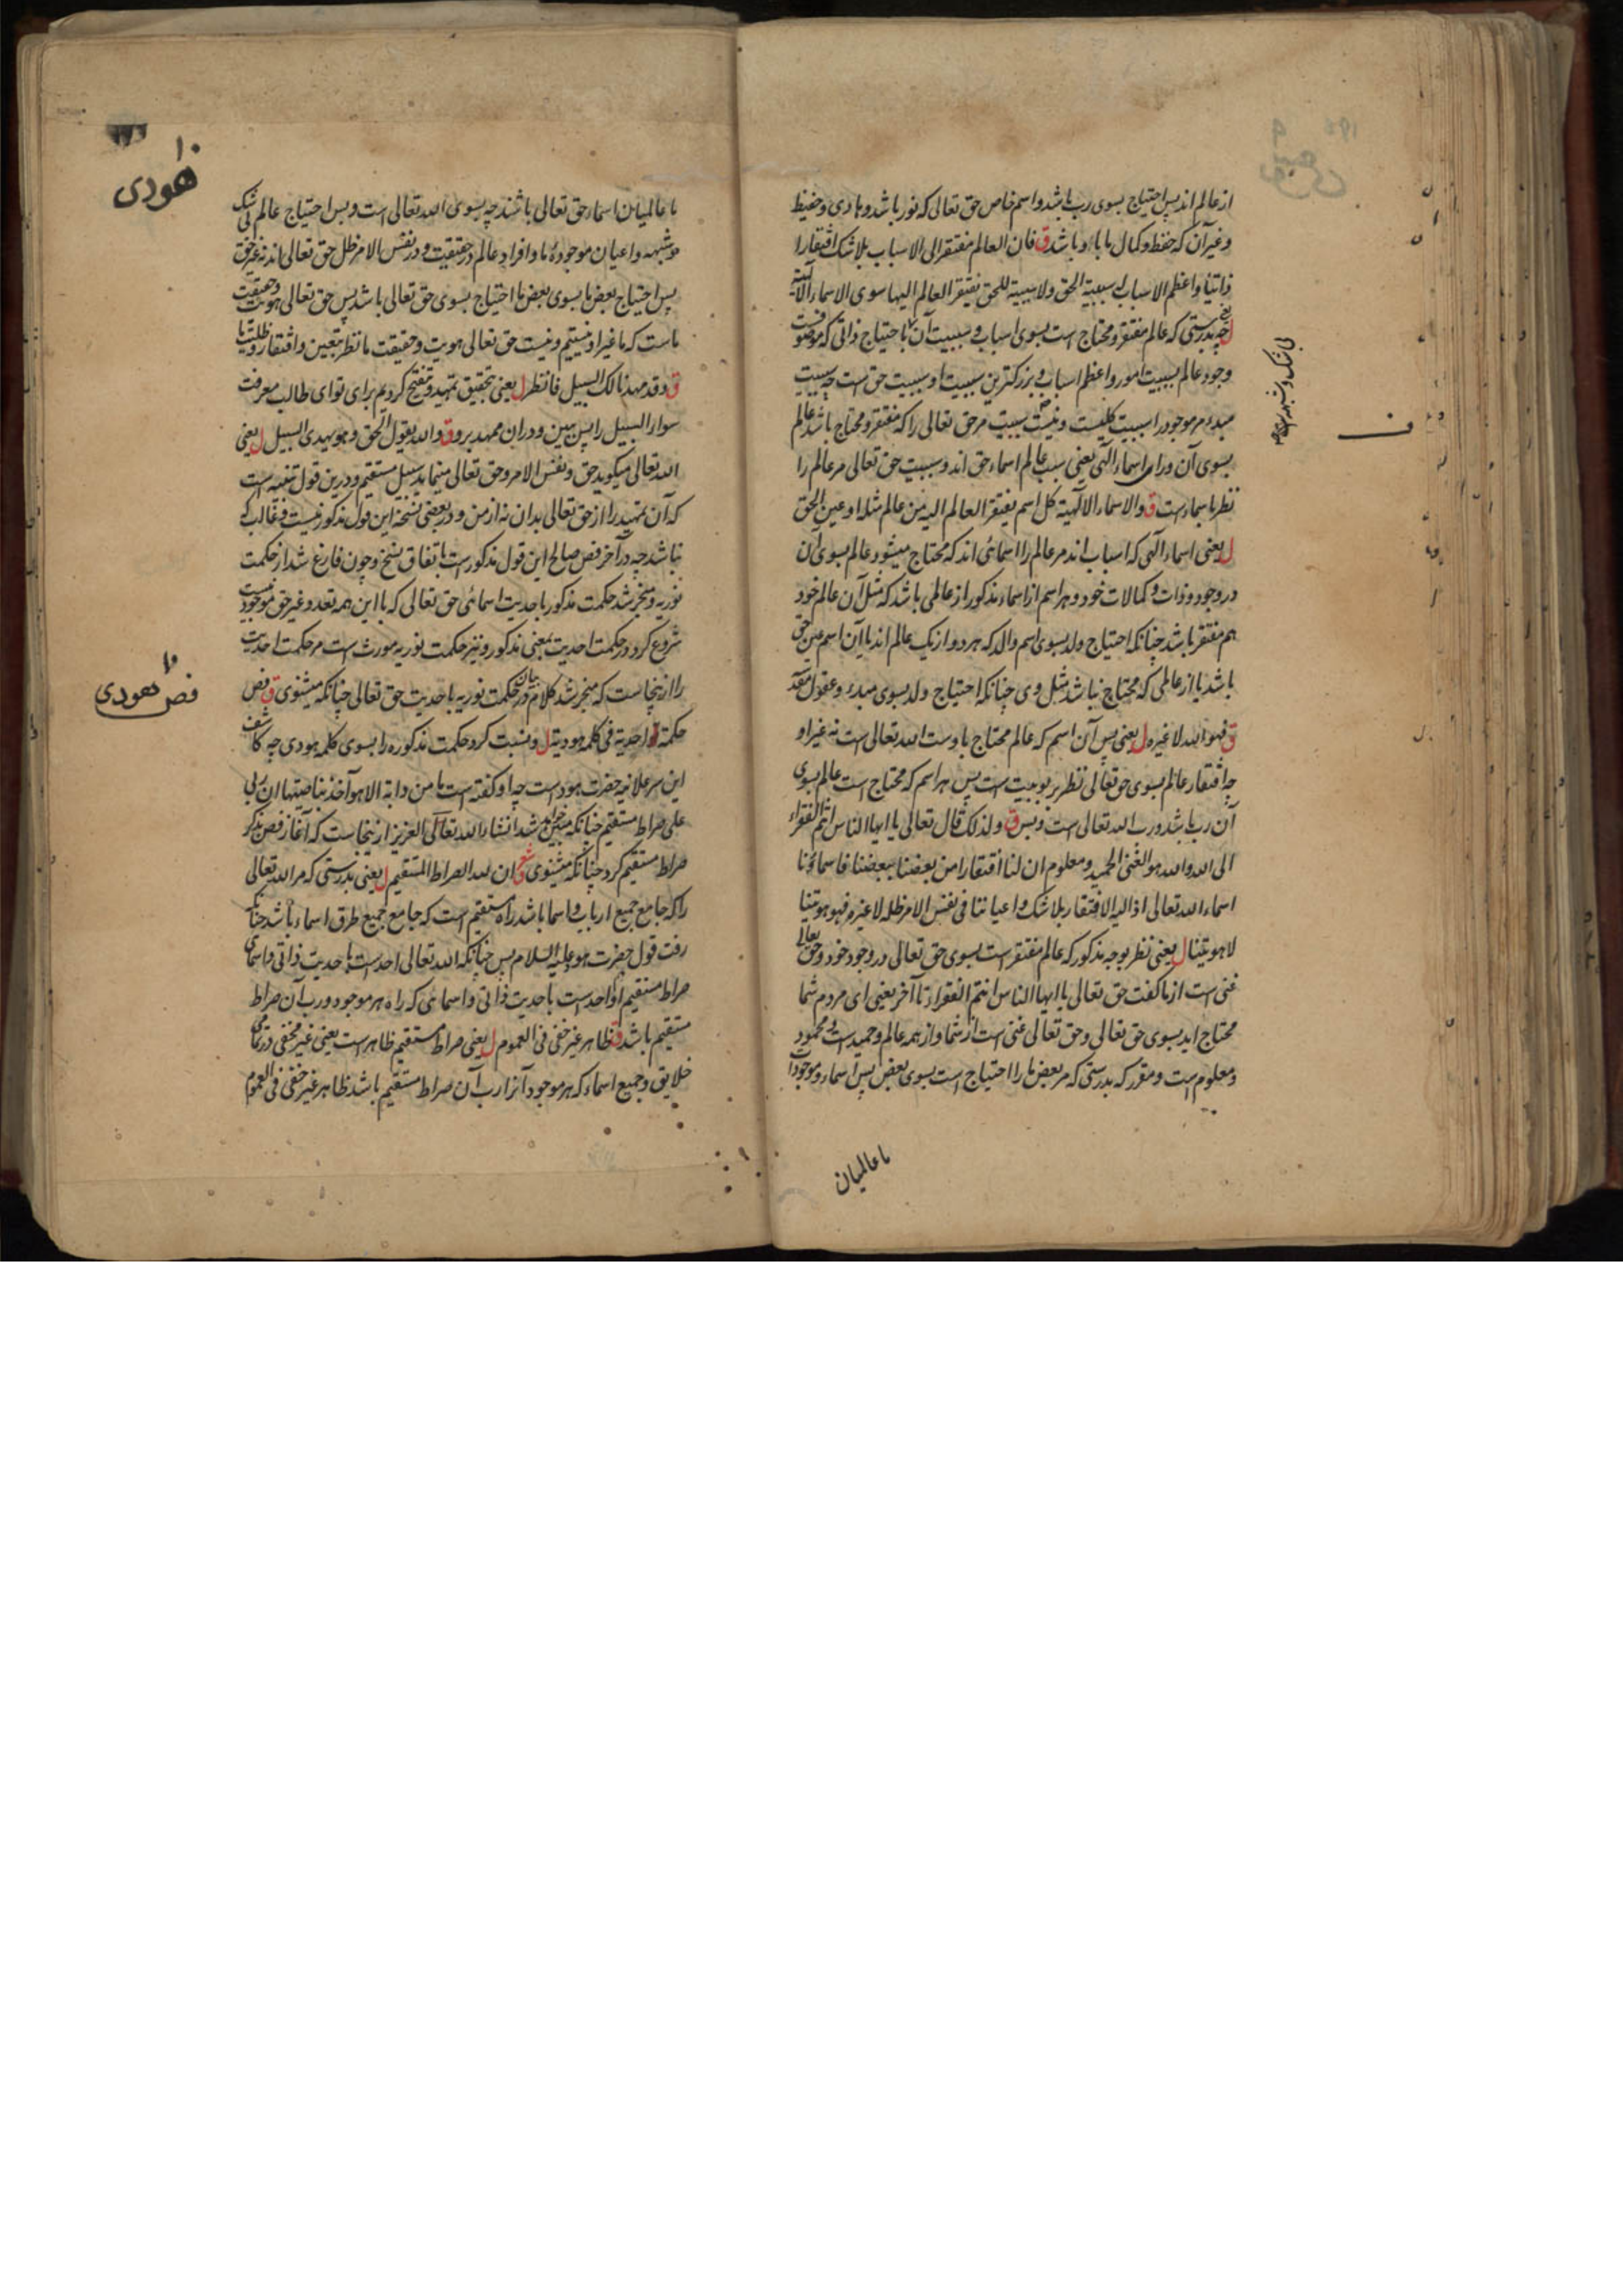 از عالم اند پس احتیاج بسوی رب باشد و اسم خاص حق تعالی که نور باشد و هادی و حفیظ
و غیر آن که حفظ و کمال ما با او باشد ق فان العالم مفتقر الی الاسباب بلا شک افتقارا
ذاتیا و اعظم الاسباب له سببیة الحق ولا سببیة للحق یفتقر العالم الیها سوی الاسماء الالهیة
ل یعنی چه بدرستی که عالم مفتقر و محتاج است بسوی اسباب و سببیت آن با احتیاج ذاتی که موصوفست
وجود عالم بسببیت امور و اعظم اسباب و بزرکترین سببیت او سببیت حق است چه سببیت
مبدء مر موجود را سببیت کلیست و نیست سببیت مر حق تعالی را که مفتقر و محتاج باشد عالم
بسوی آن ورای اسماء الهی یعنی سبب عالم اسماء حق اند و سببیت حق تعالی مر عالم را
نظر باسماء است ق والاسماء الالهیة کل اسم یفتقر العالم الیه من عالم مثله او عین الحق
ل یعنی اسماء الهی که اسباب اند مر عالم را اسمائی اند که محتاج میشود عالم بسوی آن
در وجود و ذات و کمالات خود و هر اسم از اسماء مذکور از عالمی باشد که مثل آن عالم خود
هم مفتقر باشد چنانکه احتیاج ولد بسوی اسم والد که هر دو از یک عالم اند یا آن اسم عین حق
باشد یا از عالمی که محتاج نباشد مثل وی چنانکه احتیاج ولد بسوی مبدء و عقول
ق فهو الله لا غیره ل یعنی پس آن اسم که عالم محتاج باوست الله تعالی است نه غیر او
چه افتقار عالم بسوی حق تعالی نظر بربوبیت است پس هر اسم که محتاج است عالم بسوی
آن رب باشد و رب الله تعالی است و بس ق ولذلک قال تعالی یا ایها الناس انتم الفقراء
الی الله والله هو الغنی الحمید و معلوم ان لنا افتقارا من بعضنا ببعضنا فاسماؤنا
اسماء الله تعالی اذ الیه الافتقار بلا شک و اعیاننا فی نفس الامر ظله لا غیره فهو هویتنا
لا هویتنا ل یعنی نظر بوجه مذکور که عالم مفتقر است بسوی حق تعالی در وجود خود و حق تعالی
غنی است از ما کفت حق تعالی یا ایها الناس انتم الفقراء تا آخر یعنی ای مردم شما
محتاج اید بسوی حق تعالی و حق تعالی غنی است از شما و از همه عالم و حمید است و محمود
و معلوم است و مقرر که بدرستی که مر بعض ما را احتیاج است بسوی بعض پس اسماء و موجودات
ما عالمیان
ف
۱۰
هودی
ما عالمیان اسماء حق تعالی باشند چه بسوی الله تعالی است و بس احتیاج عالم بی شک
و شبهه و اعیان موجوده ما و افراد عالم در حقیقت و در نفس الامر ظل حق تعالی اند نه غیر حق
پس احتیاج بعض ما بسوی بعض ما احتیاج بسوی حق تعالی باشد پس حق تعالی هویت و حقیقت
ماست که ما غیر او نیستیم و نیست حق تعالی هویت و حقیقت ما نظر بتعین و افتقار و ظلیت ما
ق وقد مهدنا لک السبیل فانظر ل یعنی بتحقیق تمهید و تنقیح کردیم برای تو ای طالب معرفت
سواء السبیل را پس ببین و در ان ممهد برو ق والله یقول الحق وهو یهدی السبیل ل یعنی
الله تعالی میکوید حق و نفس الامر و حق تعالی مینماید سبیل مستقیم و درین قول تنبیه است
که آن تمهید را از حق تعالی بدان نه از من و در بعضی نسخه این قول مذکور نیست و غالب که
نباشد چه در آخر فص صالح این قول مذکور است باتفاق نسخ و چون فارغ شد از حکمت
نوریه و منجر شد حکمت مذکور باحدیت اسمائی حق تعالی که با این همه تعدد غیر حق موجود نیست
شروع کرد در حکمت احدیت بمعنی مذکور و نیز حکمت نوریه مورث است مر حکمت احدیت
را از ینجاست که منجر شد کلام در بیان حکمت نوریه باحدیت حق تعالی چنانکه میشنوی ق فص
۱۰
فص هودی
حکمة احدیة فی کلمة هودیة ل و نسبت کرد حکمت مذکوره را بسوی کلمه هودی چه کاشف
این سر علانیه حضرت هود است چه او کفته است ما من دابة الا هو آخذ بناصیتها ان ربی
علی صراط مستقیم چنانکه مبین خواهد شد انشاء الله تعالی العزیز از ینجاست که آغاز فص بذکر
صراط مستقیم کرد چنانکه میشنوی ق شعر ان لله الصراط المستقیم ل یعنی بدرستی که مر الله تعالی
را که جامع جمیع ارباب و اسما باشد راه مستقیم است که جامع جمیع طرق اسماء باشد چنانکه
رفت قول حضرت هود علیه السلام پس چنانکه الله تعالی احد است باحدیت ذاتی و اسمائی
صراط مستقیم او احد است باحدیت ذاتی و اسمائی که راه هر موجود و رب آن صراط
مستقیم باشد ق ظاهر غیر خفی فی العموم ل یعنی صراط مستقیم ظاهر است یعنی غیر مخفی در تمامی
خلایق و جمیع اسماء که هر موجود آنرا رب آن صراط مستقیم باشد ظاهر غیر خفی فی العموم